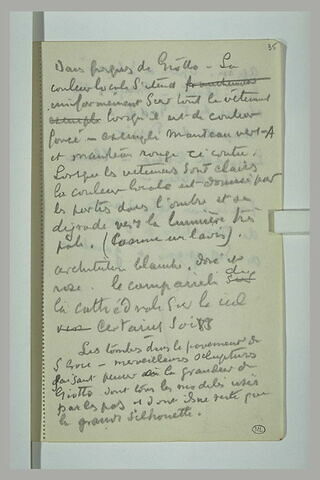 35
Dans fresques de Giotto - La
couleur locale s'étend
uniformément sur tout le vêtement
lorsqu'il est de couleur
foncé - exemple manteau vert A
et manteau rouge ci contre.
Lorsque les vetements sont clairs
la couleur locale est donnée par
les parties dans l'ombre et se
dégrade vers la lumière très
pale. (Comme un lavis).
architecture blanche, dorée et
rose. le campanile de
la cathédrale sur le ciel
certains soirs
Les tombes dans le pavement de
S Croce - merveilleuses sculptures
faisant penser à la grandeur de
Giotto dont tous les modelés usés
par les pas et dont il ne reste que
la grande silhouette.